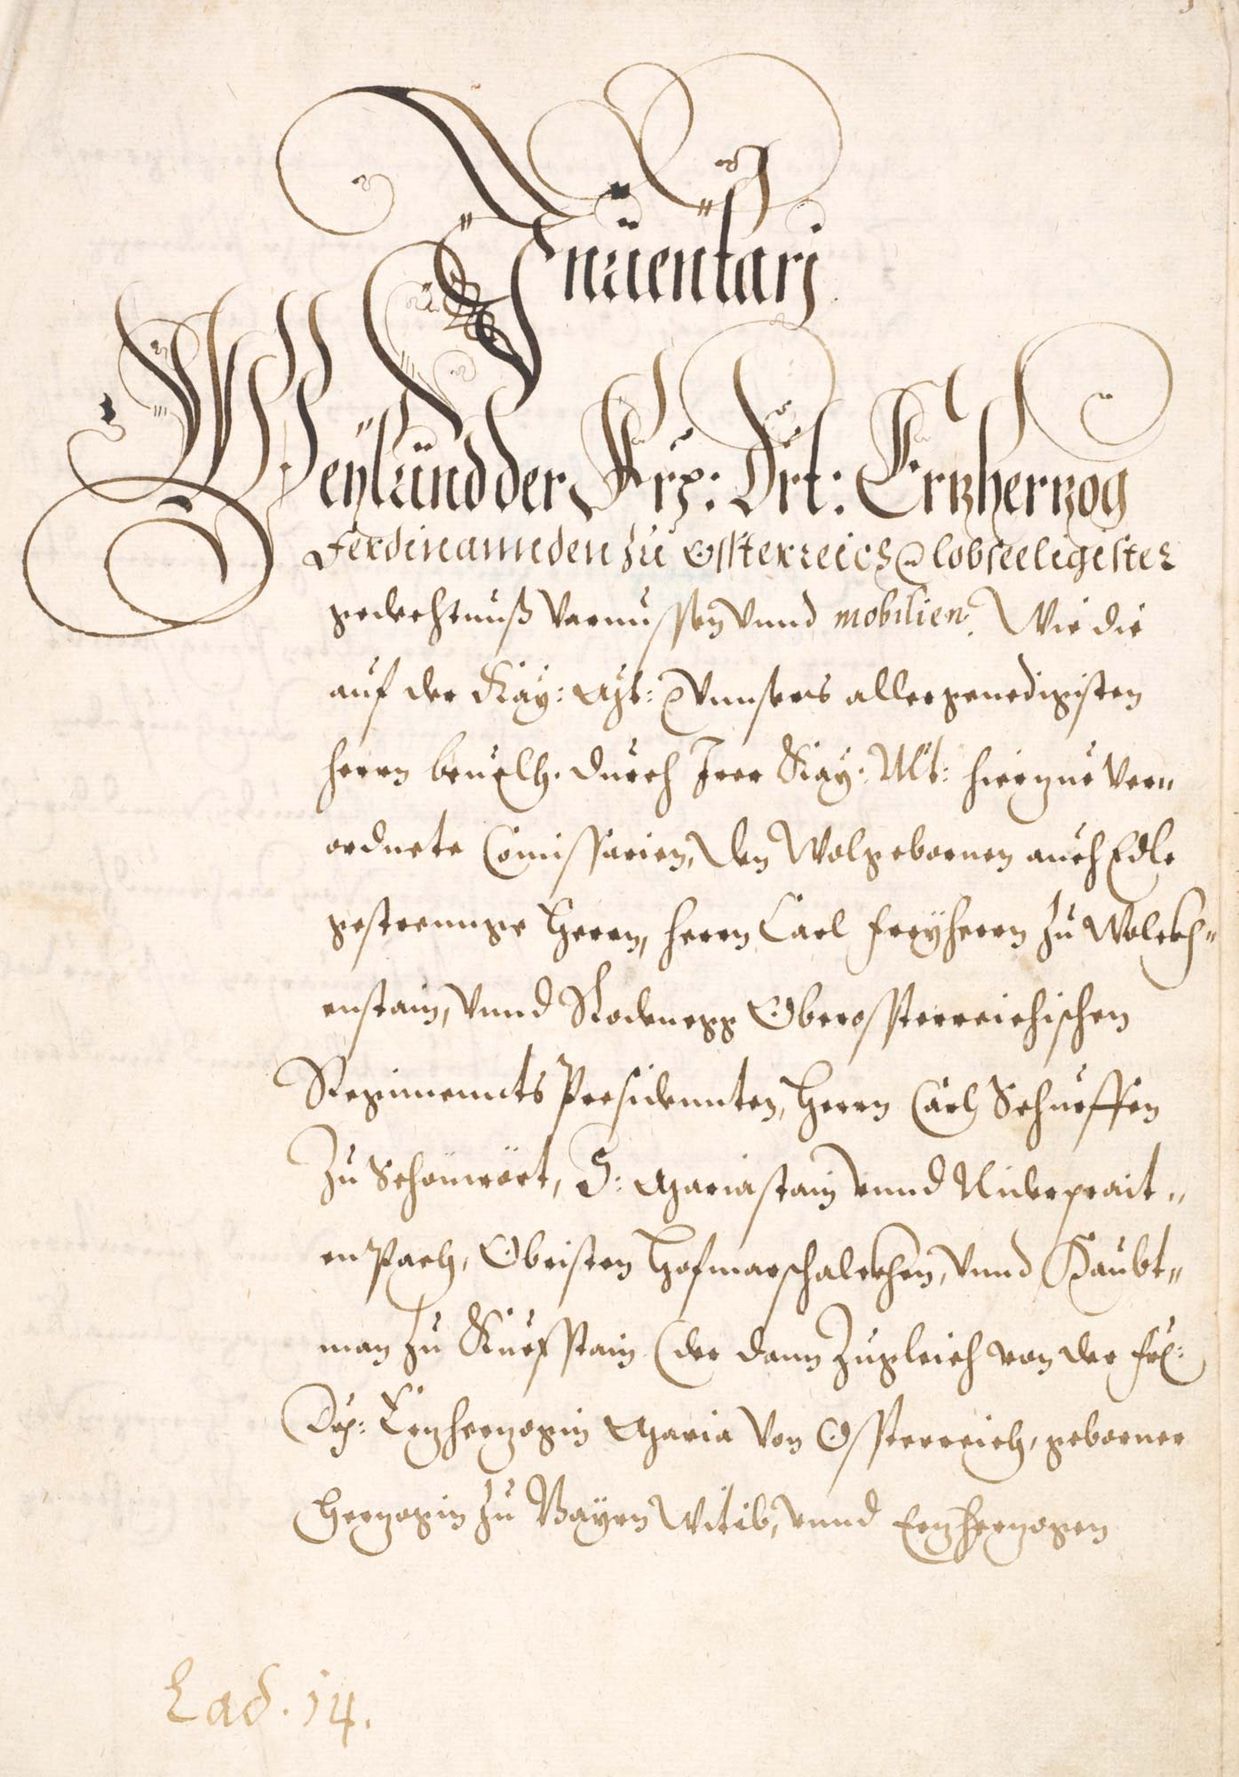 Inuentarj
Weylünd der Frz: Drt: Ertzhertzog
Ferdinannden zu Ossterreich lobseeligister
gedechtnuß Varnussen vnnd mobilien. Wie die
auf der Kay: Mt: vnnsers allergenedigisten
herrn beuelh. durch Irer Kay: Mt: hierzue Ver„
ordnete Comissarien, den Wolgebornen auch Edle
gestrennge Herrn, herrn Carl freyherrn zu Wolckh„
enstain, vnnd Rodenegg Oberossterreichischen
Regimennts Presidennten, Herrn Carln Schurffen
zu Schönwört, S: Mariastain vnnd Niderprait„
enPach, Obristen Hofmarschalckhen, vnnd Haubt„
man zu Kuefstain (der dann zugleich von der frl:
Drl: Ertzhertzogin Maria von Ossterreich, geborner
Hertzogin zu Bayrn Witib, vnnd Ertzhertzogen
Lad. 14.